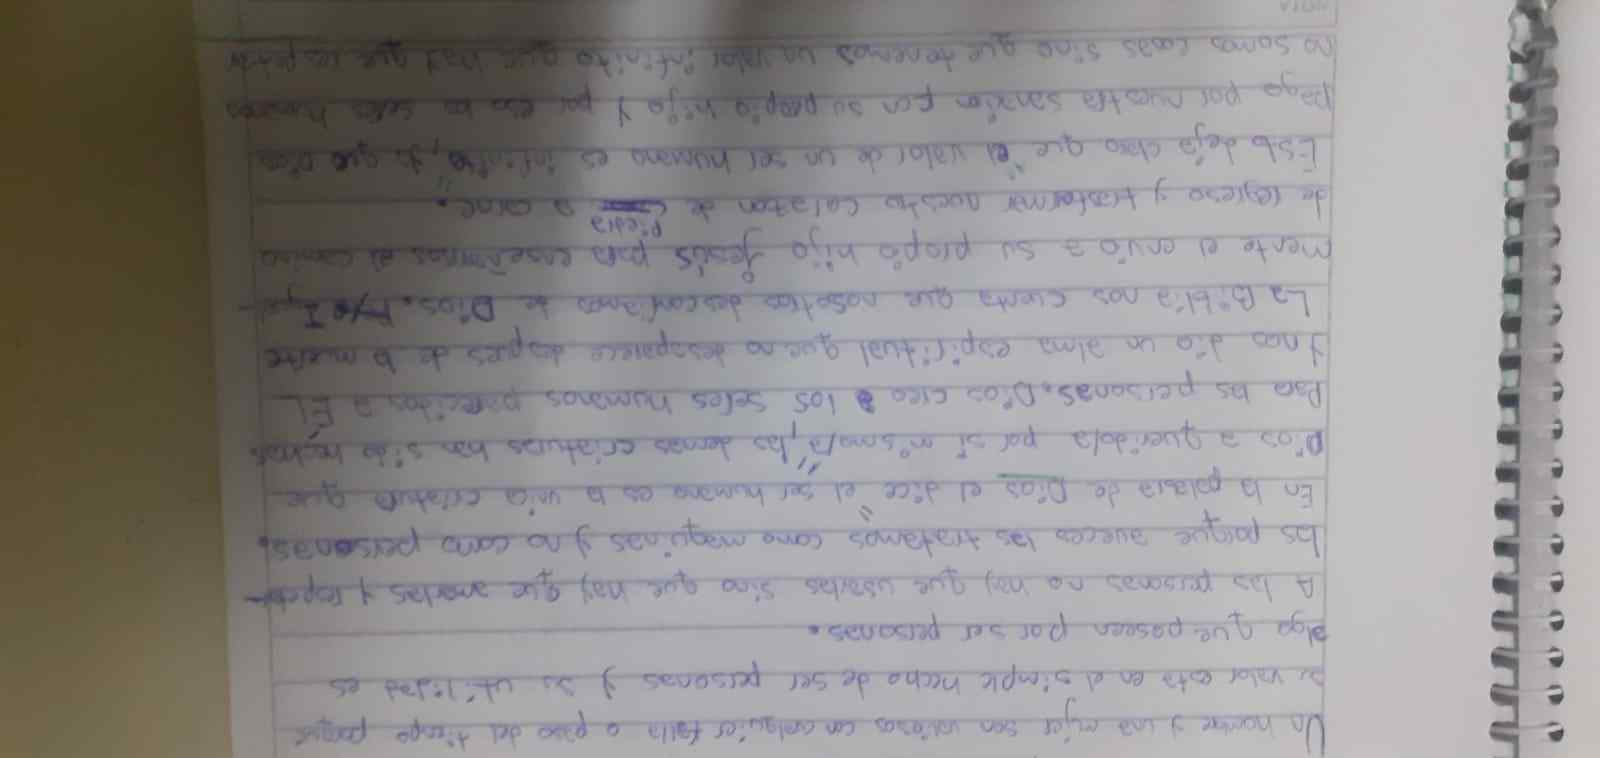 Un hombre y una mujer son valiosos con cualquier falla o paso del tiempo porque
su valor está en el simple hecho de ser personas y su utilidad es
algo que poseen por ser personas.
A las personas no hay que usarlas sino que hay que amarlas y respetar-
las porque aveces las tratamos como maquinas y no como personas.
En la palabra de Dios el dice "el ser humano es la unica criatura que
Dios a querido/a por si mismo/a", las demas criaturas han sido hechas
Para las personas. Dios creo a los seres humanos parecidos a ÉL
y nos dio un alma espiritual que no desaparece despues de la muerte
La Biblia nos cuenta que nosotros desconfiamos de Dios. Igual-
mente el envió a su propio hijo Jesús para enseñarnos el camino
de regreso y trasformar nuestro corazon de piedra a carne."
Esto deja claro que "el valor de un ser humano es infinito", ya que Dios
Pago por nuestra sanxion con su propio hijo y por eso los seres humanos
no somos cosas sino que tenemos un valor infinito que hay que respetar
NOTA